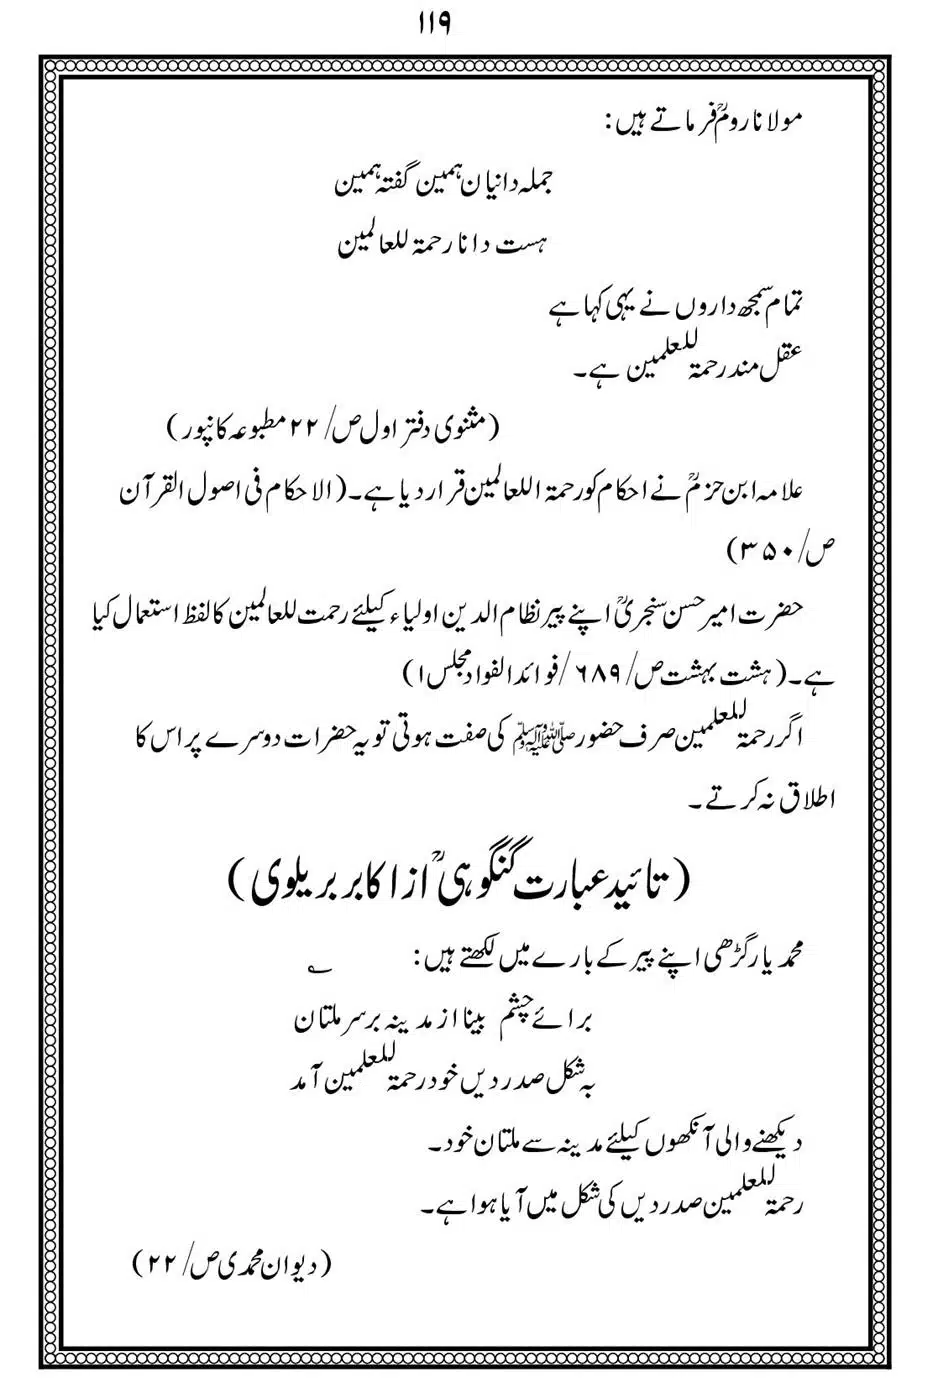 ۱۱۹
مولانا رومؒ فرماتے ہیں:
جملہ دانیان ہمین گفتہ ہمین
ہست دانا رحمۃ للعالمین
تمام سمجھ داروں نے یہی کہا ہے
عقل مند رحمۃ للعلمین ہے۔
(مثنوی دفتر اول ص/۲۲ مطبوعہ کانپور)
علامہ ابن حزمؒ نے احکام کو رحمۃ اللعالمین قرار دیا ہے۔ (الاحکام فی اصول القرآن
ص/۳۵۰)
حضرت امیر حسن سنجریؒ اپنے پیر نظام الدین اولیاء کیلئے رحمت للعالمین کا لفظ استعمال کیا
ہے۔ (ہشت بہشت ص/۶۸۹/فوائد الفواد مجلس ۱)
اگر رحمۃ للعلمین صرف حضور ﷺ کی صفت ہوتی تو یہ حضرات دوسرے پر اس کا
اطلاق نہ کرتے۔
(تائید عبارت گنگوہیؒ از اکابر بریلوی)
محمد یار گڑھی اپنے پیر کے بارے میں لکھتے ہیں: ؎
برائے چشم بینا از مدینہ بر سر ملتان
بہ شکل صدر دیں خود رحمۃ للعلمین آمد
دیکھنے والی آنکھوں کیلئے مدینہ سے ملتان خود۔
رحمۃ للعلمین صدر دیں کی شکل میں آیا ہوا ہے۔
(دیوان محمدی ص/۲۲)